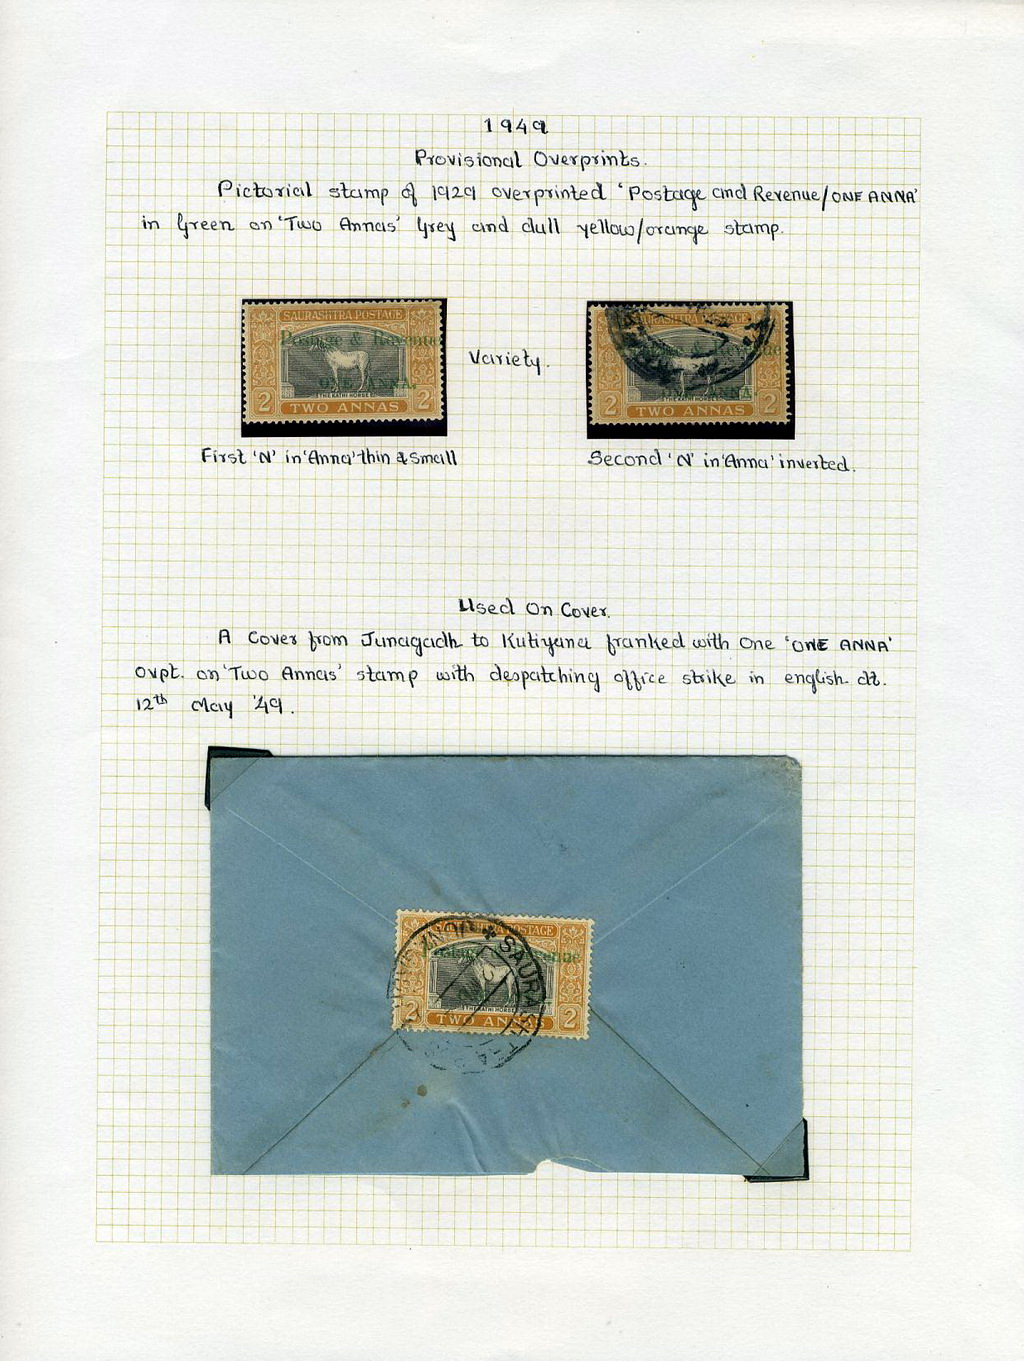 1949
Provisional Overprints.
Pictorial stamp of 1929 overprinted 'Postage and Revenue/ONE ANNA'
in Green on 'Two Annas' Grey and dull yellow/orange stamp.
SAURASHTRA POSTAGE
Postage & Revenue
ONE ANNA.
THE KATHI HORSE
2 TWO ANNAS 2
Variety.
SAURASHTRA POSTAGE
& Revenue
ANNA
THE KATHI HORSE
2 TWO ANNAS 2
First 'N' in 'Anna' thin & small
Second 'N' in 'Anna' inverted.
Used On Cover.
A Cover from Junagadh to Kutiyana franked with One 'ONE ANNA'
Ovpt. on 'Two Annas' stamp with despatching office strike in english dt.
12th May '49.
POSTAGE
Postage Revenue
SAURASHTRA
THE KATHI HORSE
2 TWO ANNAS 2